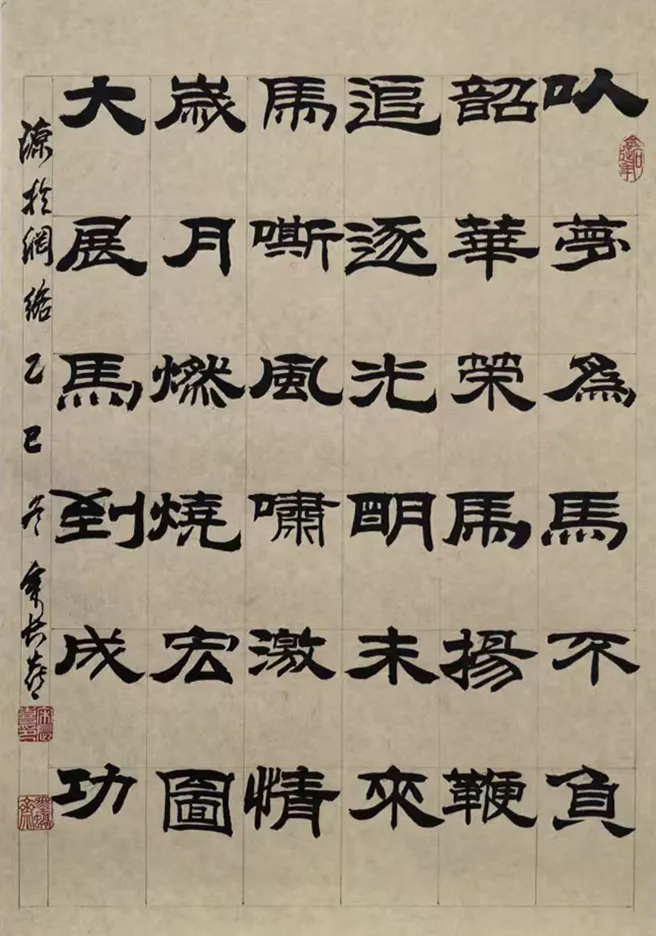 以夢為馬不負
韶華榮馬揚鞭
追逐光明未來
馬嘶風嘯激情
歲月燃燒宏圖
大展馬到成功
源於網絡乙巳冬